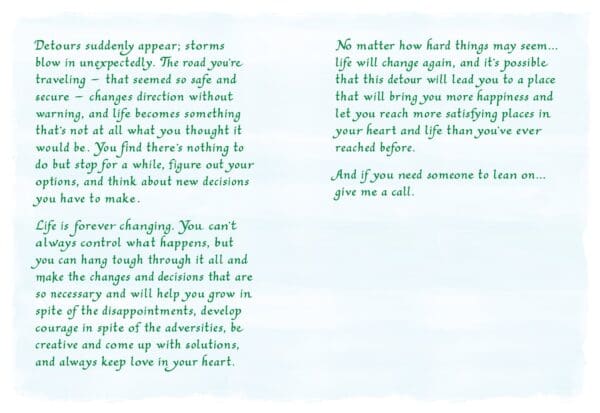 Detours suddenly appear; storms
blow in unexpectedly. The road you're
traveling – that seemed so safe and
secure – changes direction without
warning, and life becomes something
that's not at all what you thought it
would be. You find there's nothing to
do but stop for a while, figure out your
options, and think about new decisions
you have to make.
Life is forever changing. You can't
always control what happens, but
you can hang tough through it all and
make the changes and decisions that are
so necessary and will help you grow in
spite of the disappointments, develop
courage in spite of the adversities, be
creative and come up with solutions,
and always keep love in your heart.
No matter how hard things may seem...
life will change again, and it's possible
that this detour will lead you to a place
that will bring you more happiness and
let you reach more satisfying places in
your heart and life than you've ever
reached before.
And if you need someone to lean on...
give me a call.